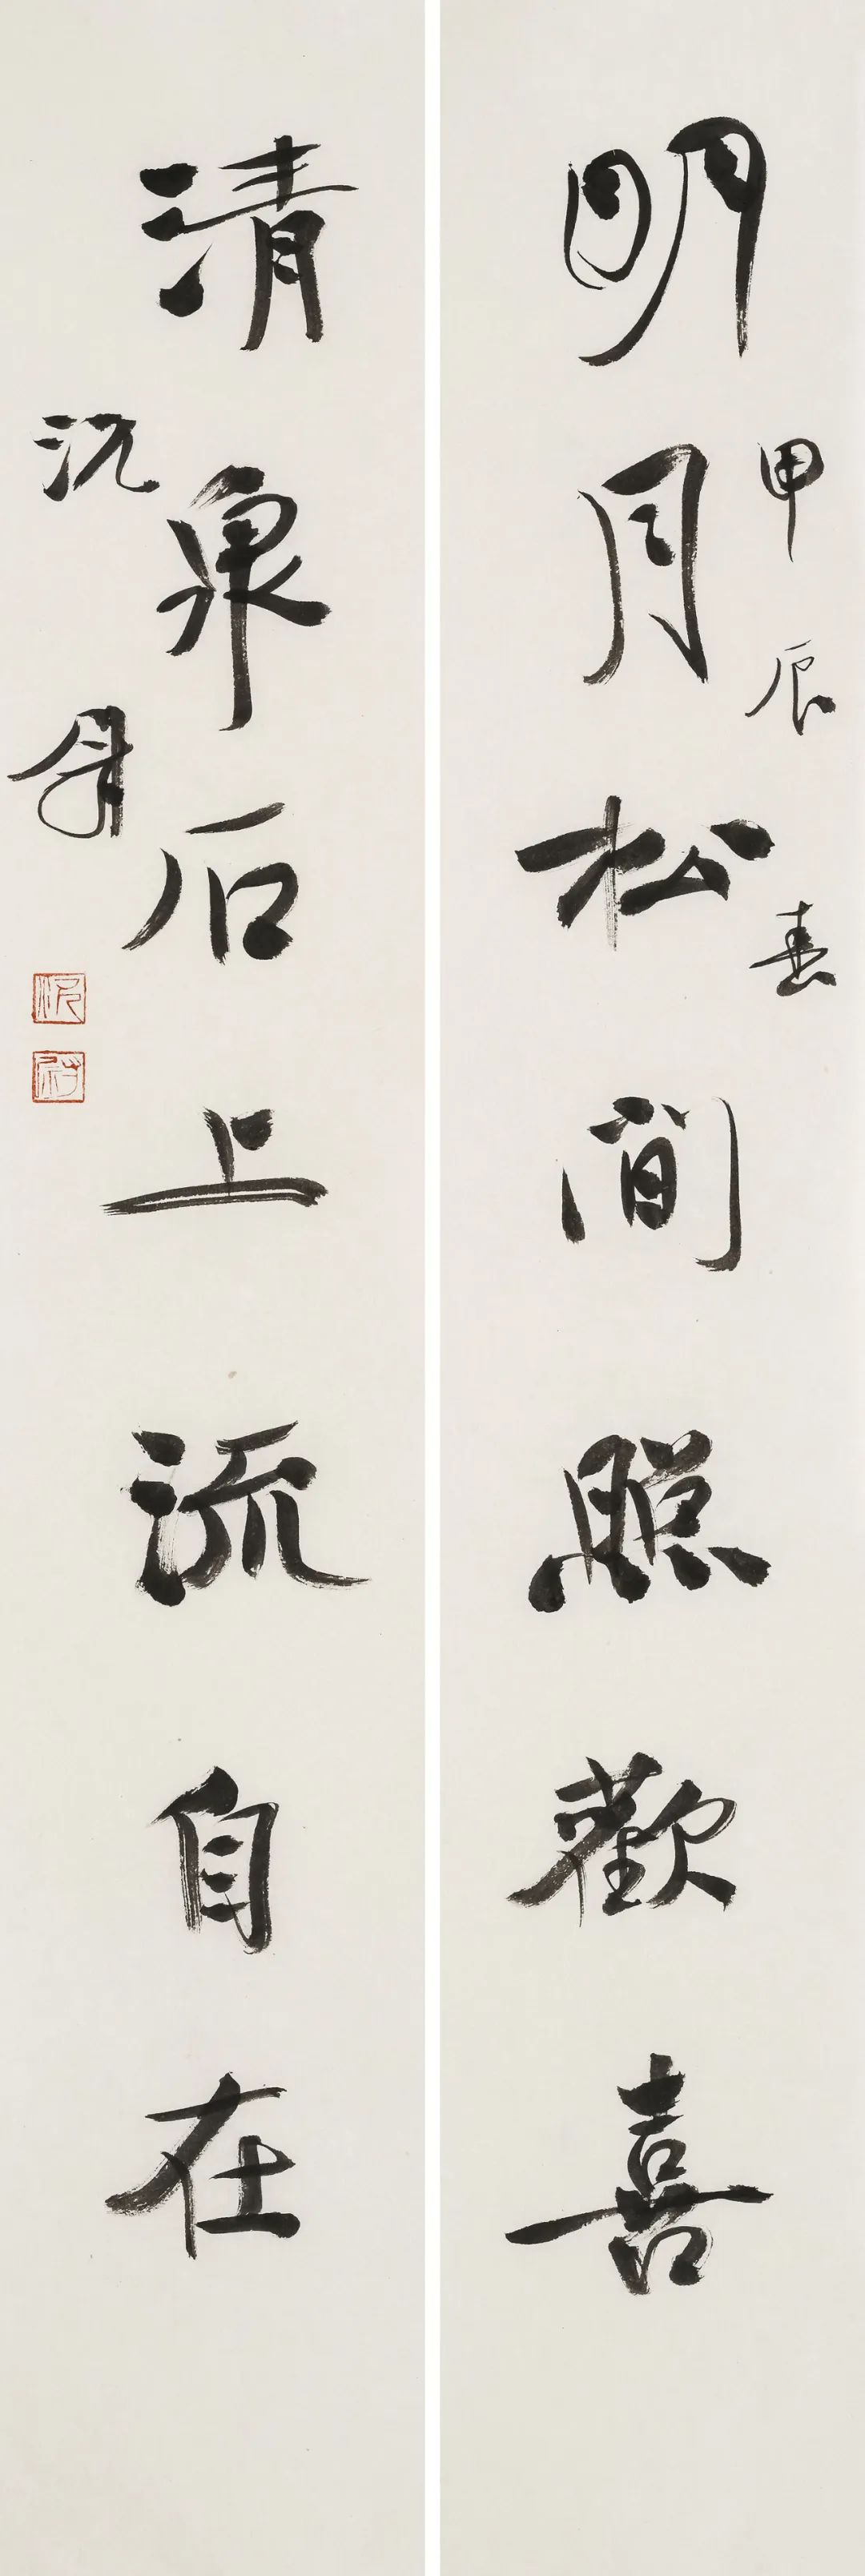 明月松間照歡喜
甲辰春
清泉石上流自在